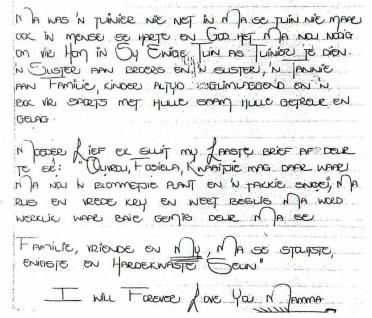 MA WAS 'N TUINIER NIE NET IN MA SE TUIN NIE MAAR
OOK IN MENSE SE HARTE EN GOD HET MA NOU NODIG
OM VIR HOM IN SY ENIGE TUIN AS TUINIER TE DIEN.
'N SUSTER AAN BROERS EN 'N SUSTER, 'N TANNIE
AAN FAMILIE, KINDER ALTYD EN 'N
EK VIR SPORTS MET HULLE SAAM HULLE GETREUR EN
GELAG.
MOEDER LIEF EK SLUIT MY LAASTE BRIEF AF DEUR
TE SÊ: "OUVROU, FOSIELA, KNAATJIE MAG DAAR WAAR
MA NOU 'N BLOMMETJIE PLANT EN 'N TAKKIE SNOEI, MA
RUS EN VREDE KRY EN WEET BESLIS MA WORD
WERKLIK WAAR BAIE GEMIS DEUR MA SE
FAMILIE, VRIENDE EN MY, MA SE STOUTSTE,
ENIGSTE EN HARDEKWASTE SEUN"
I WILL FOREVER LOVE YOU MAMMA